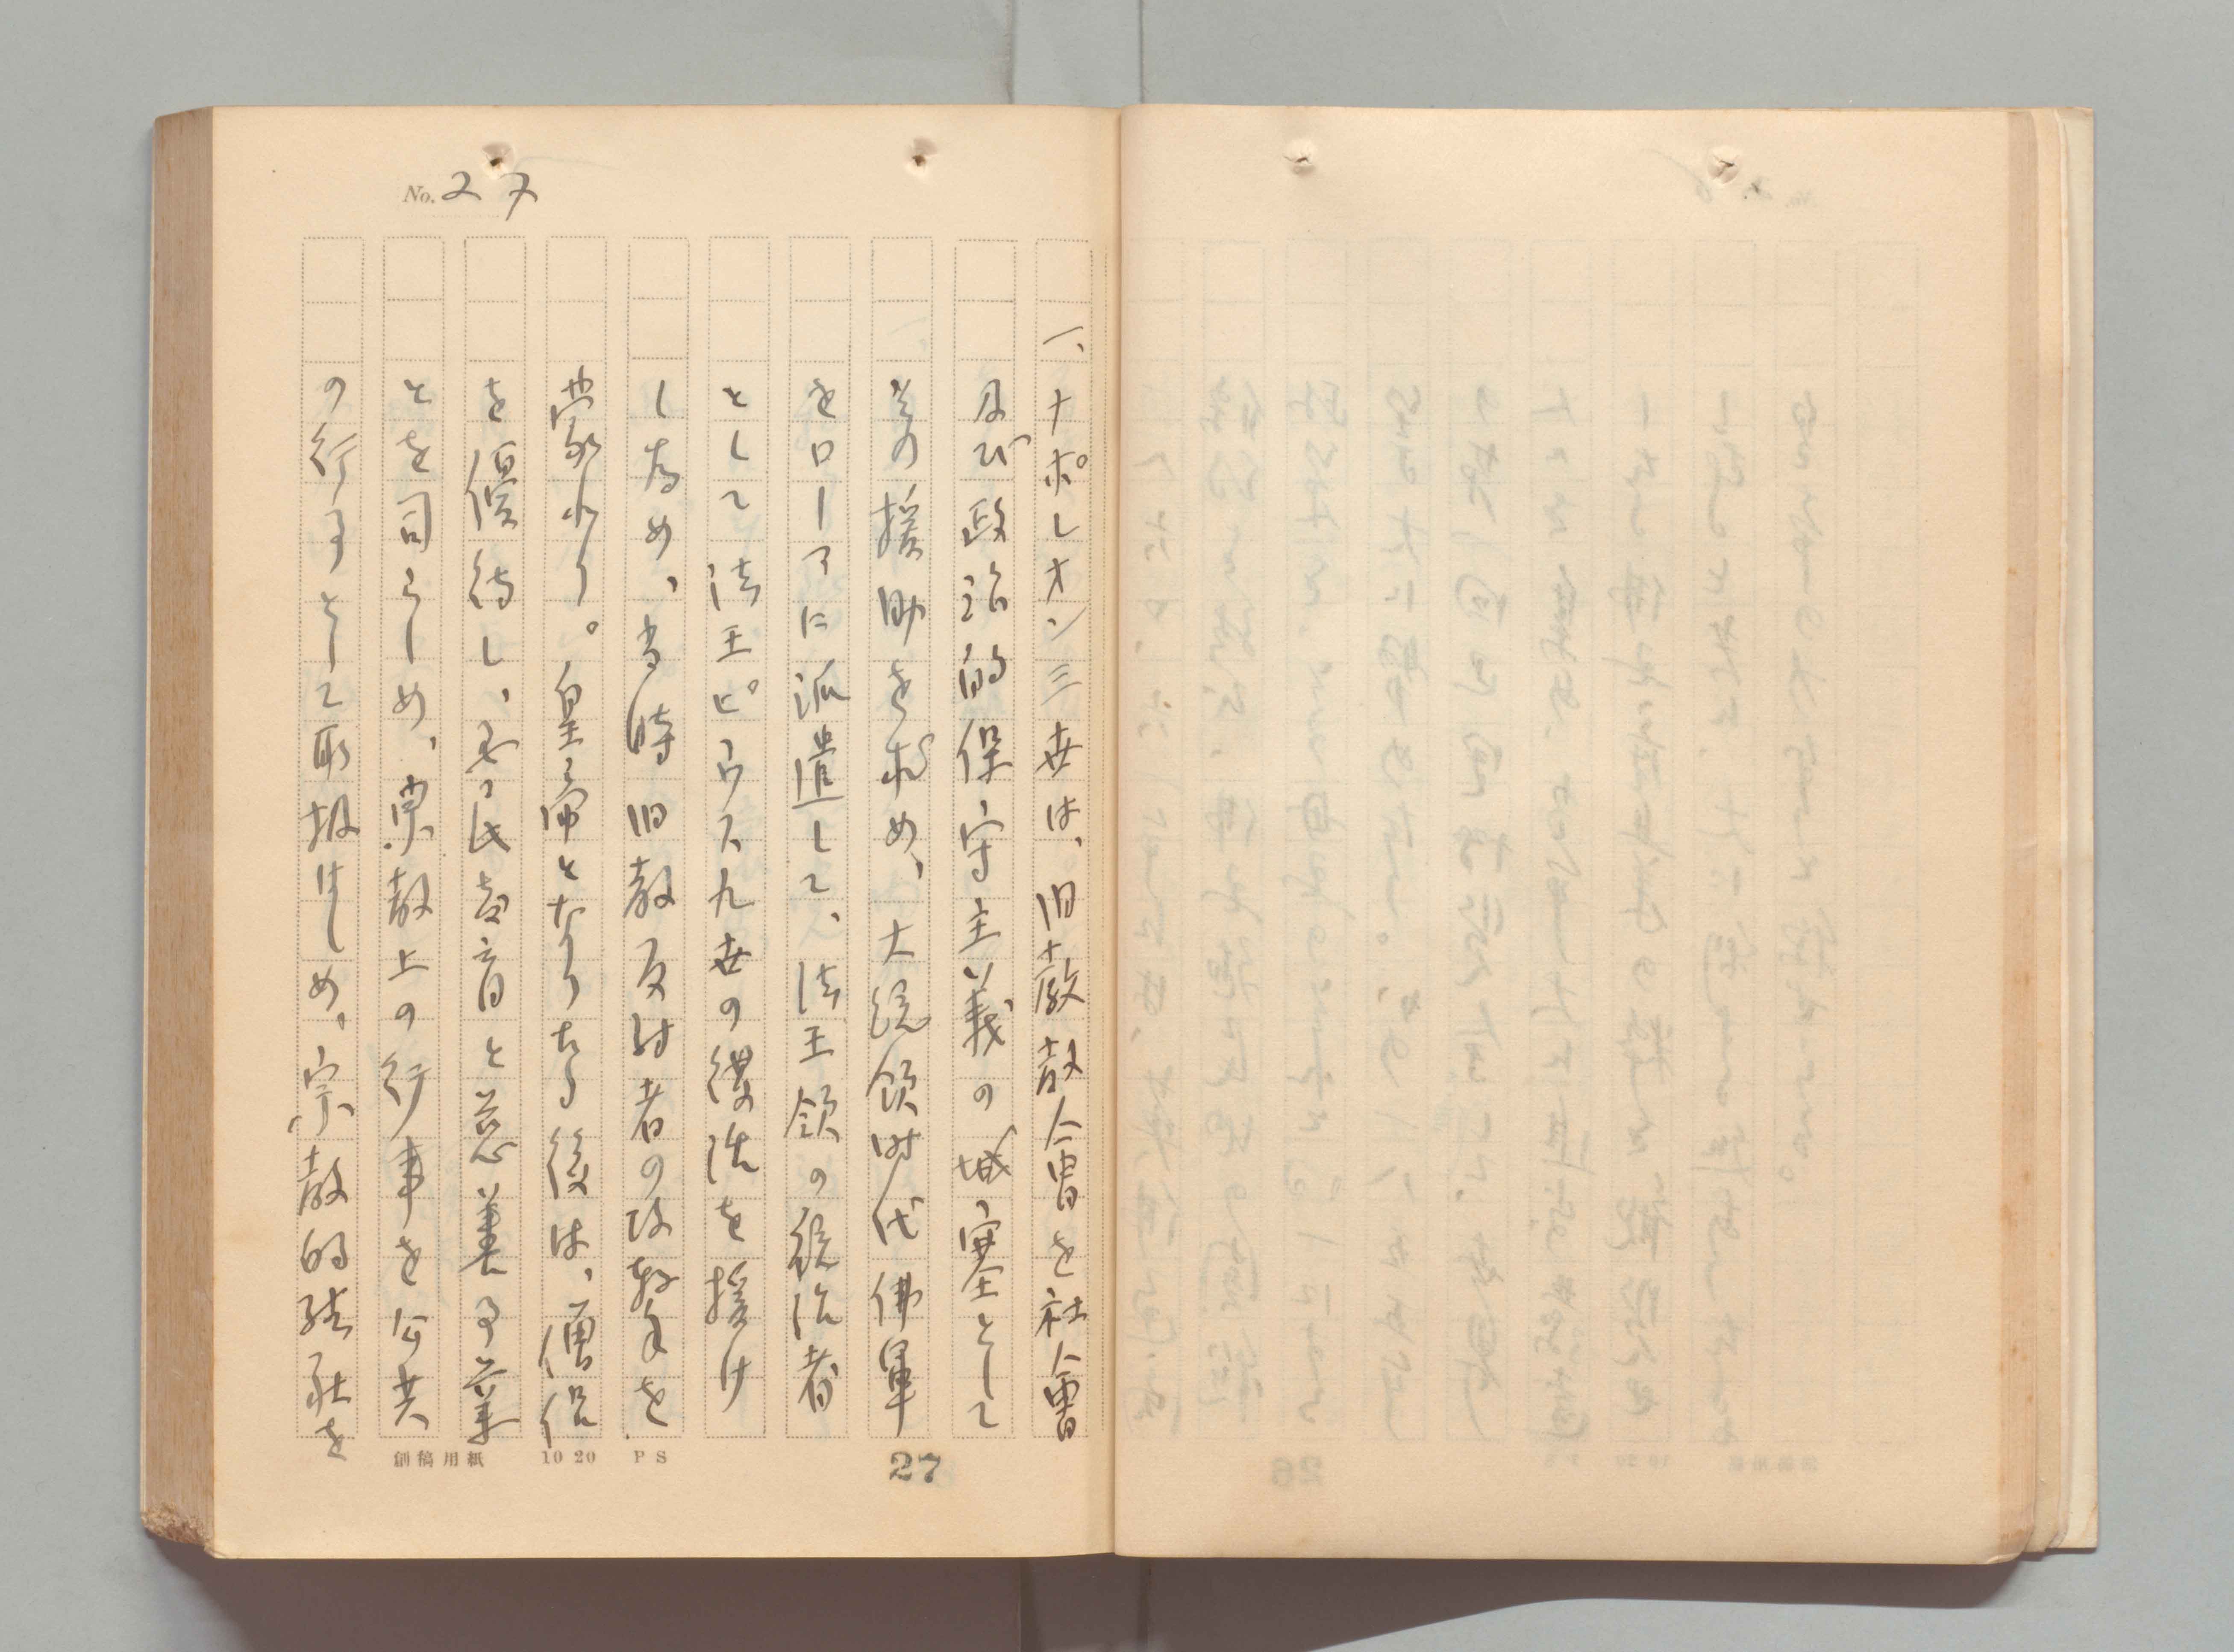 No. 27
一、ナポレオン三世は、旧教教会を社会
及び政治的保守主義の城塞として
その援助を求め、大統領時代佛軍
をローマに派遣して、法王領の統治者
として法王ピウス九世の復活を援け
し為め、当時旧教反対者の攻撃を
蒙れり。皇帝となりたる後は、僧侶
を優待し、 と慈善事業
とを司らしめ、宗教上の行事を公共
の行事として取扱はしめ、宗教的結社を
創稿用紙 10 20 P S
27